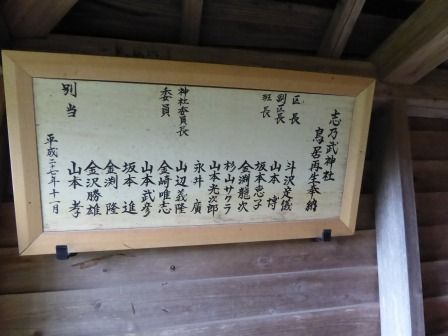 志乃武神社
鳥居再生奉納
区長 斗沢幸儀
副区長 山本 博
班長 坂本恵子
金渕龍次
杉山サクラ
山本光次郎
永井 廣
神社委員長 山辺義隆
委員 金崎唯志
山本武彦
坂本 進
金渕 隆
金沢勝雄
別当 山本 孝
平成二十七年十一月